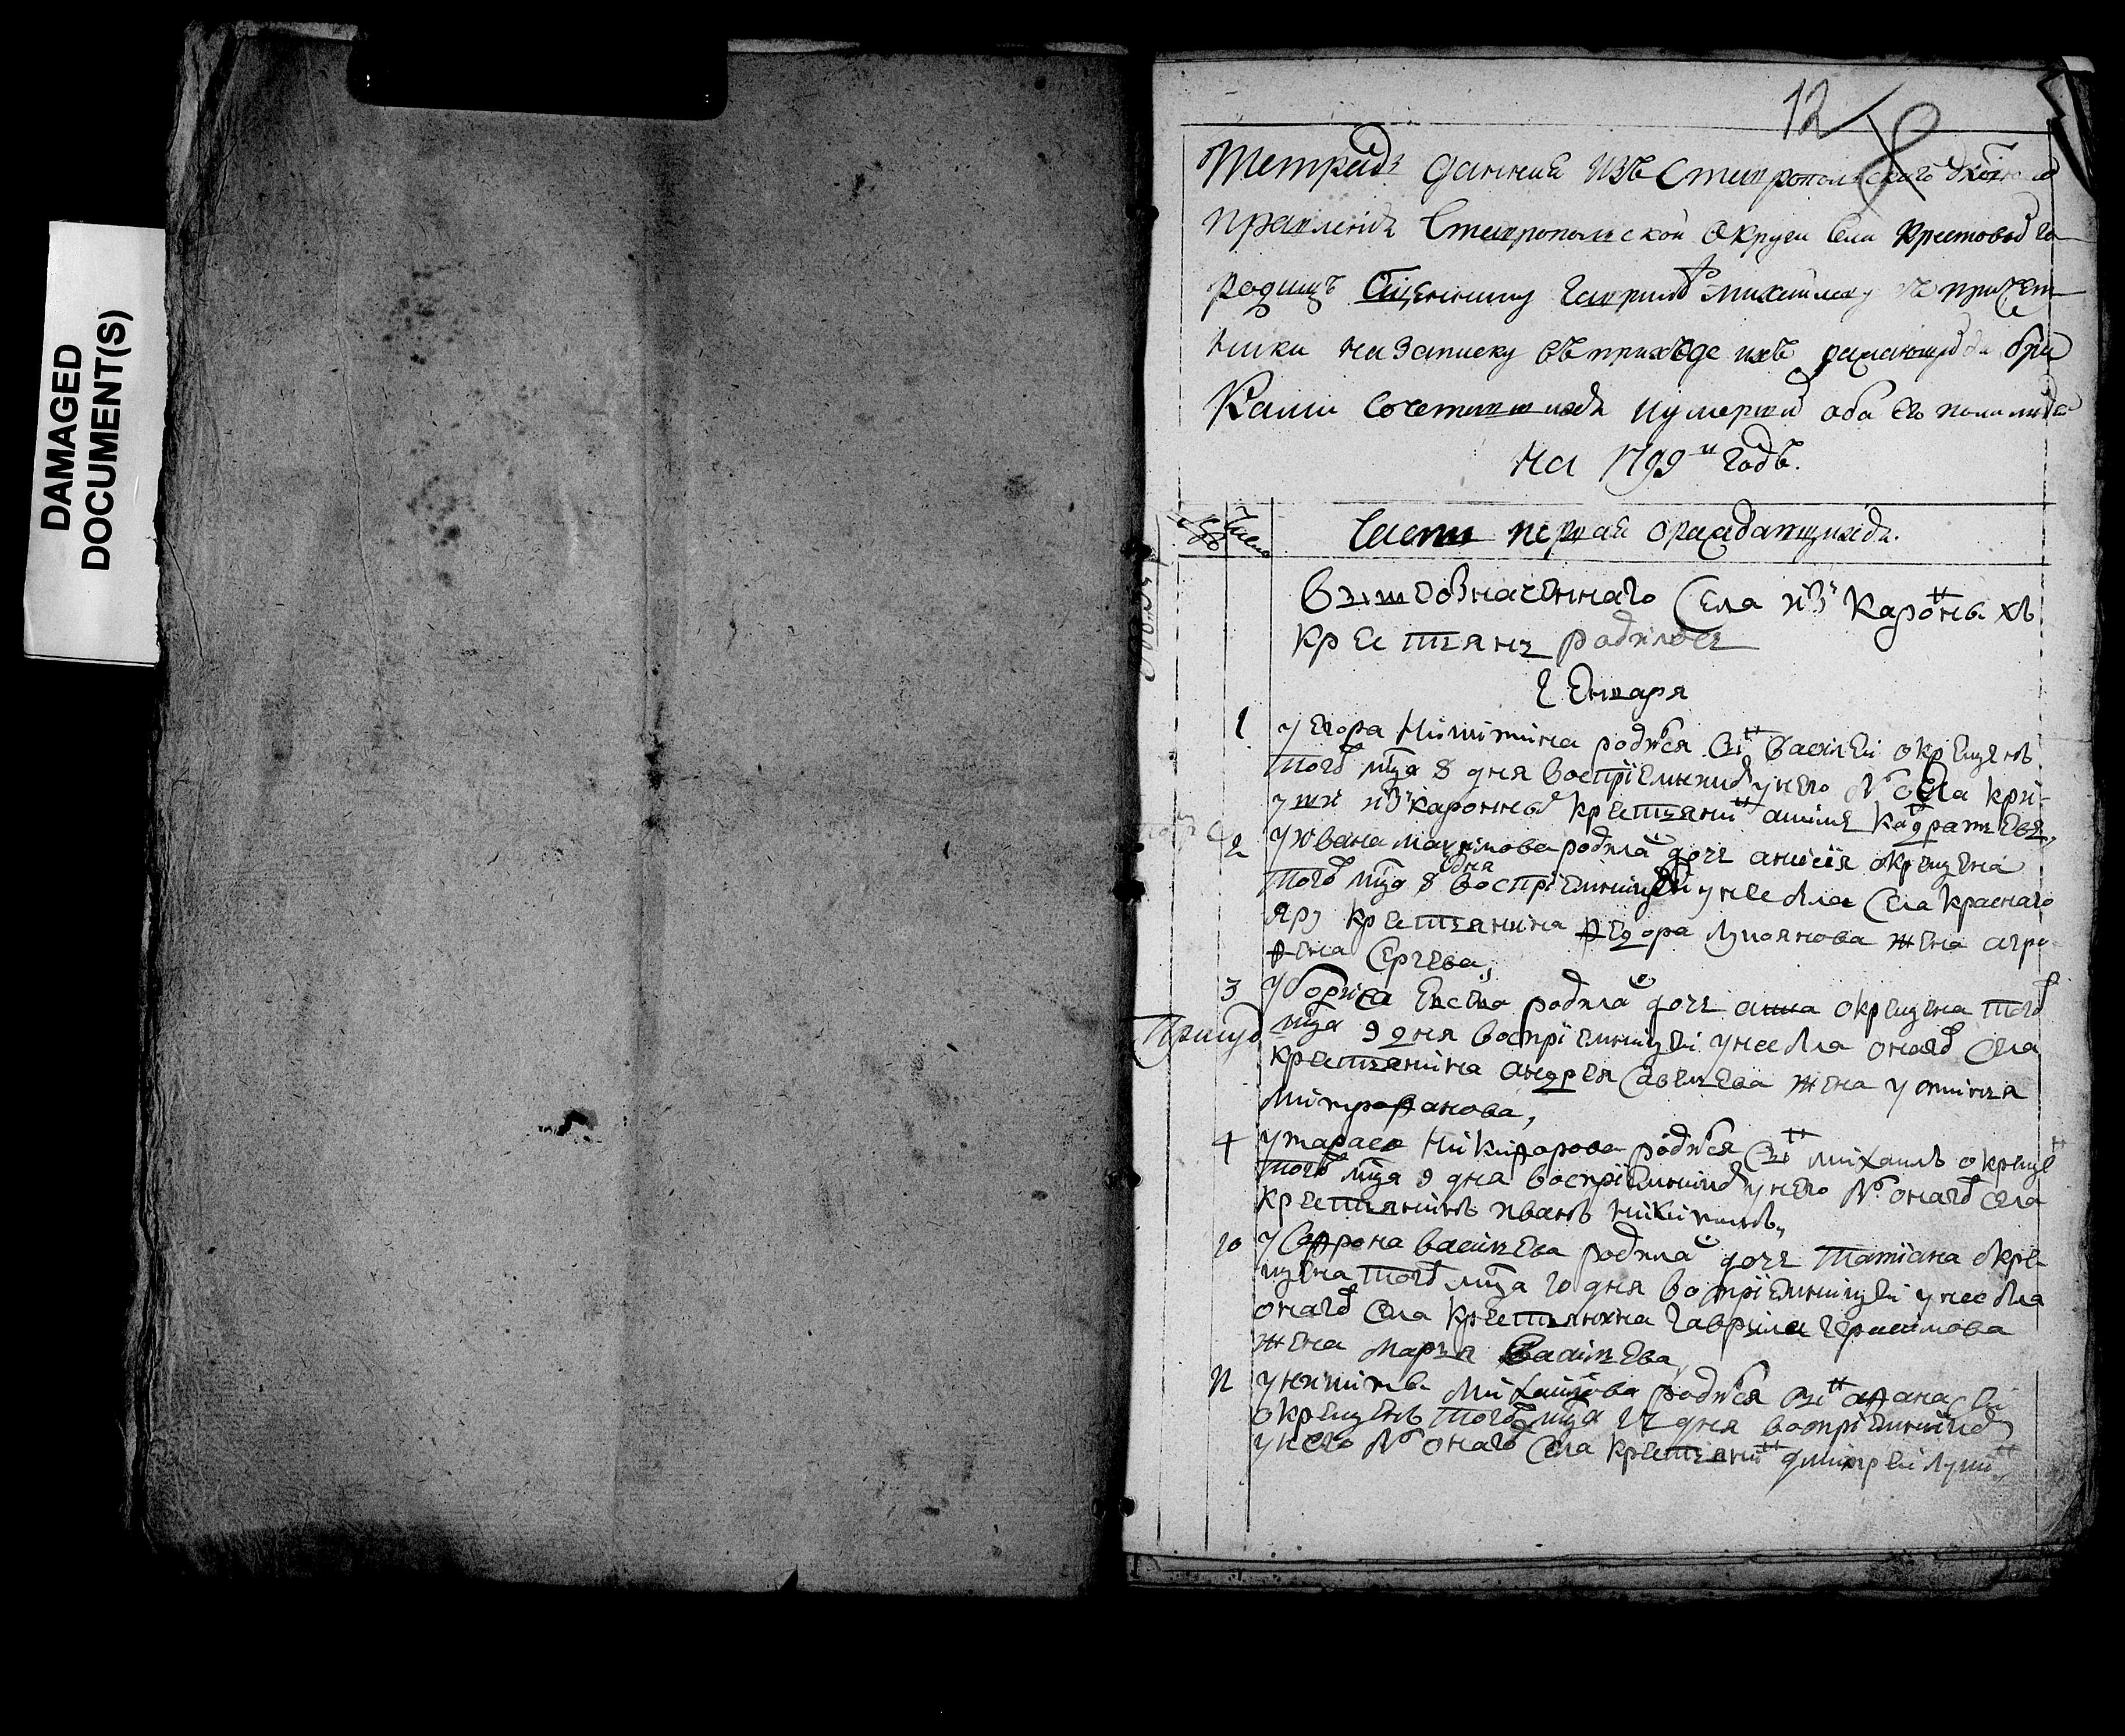 DAMAGED
DOCUMENT(S)
12
8
Тетрадь данная изъ Ставропольскаго духовнаго
правленія Ставропольской округи села Крестовыхъ го
родищъ священнику Гаврилѣ Михайлову съ причет
ники на записку въ приходе ихъ раждающихся бра
ками сочетавшихся и умершихъ обоего пола людей
на 1799й годъ.
Число
Часть первая о раждающихся.
Вышеозначеннаго Села изъ каронныхъ
крестьянъ родилось
Генваря
1 у Егора Никитина родился сынъ Василей окрещенъ
того мца 8 дня воспріемникъ у него былъ села Кри-
уши изъ каронныхъ крестьянинъ
2 у Ивана родилась дочь Анисія окрещена
того мца 8 дня воспріемницей у нее была села Краснаго
Яру крестьянина Федора Лукоянова жена Агро-
фена Сергева,
3 у Бориса родилась дочь Анна окрещена того
мца 9 дня воспріемницей у нее была онагожъ села
крестьянина Андрея Савельева жена Устинья
Митрофанова,
4 у Тараса Никифорова родился сынъ Михаилъ окрещенъ
того мца 9 дня воспріемникъ у него былъ онагожъ села
крестьянинъ Иванъ Никитинъ,
10 у Софрона Васильева родилась дочь Татіана окре-
щена того мца 10 дня воспріемницей у нее была
онагожъ села крестьянина Гаврила Герасимова
жена Марья Васильева,
у Никиты Михайлова родился сынъ Афанасей
окрещенъ того мца 12 дня воспріемникъ
у него былъ онагожъ села крестьянинъ Дмитрей